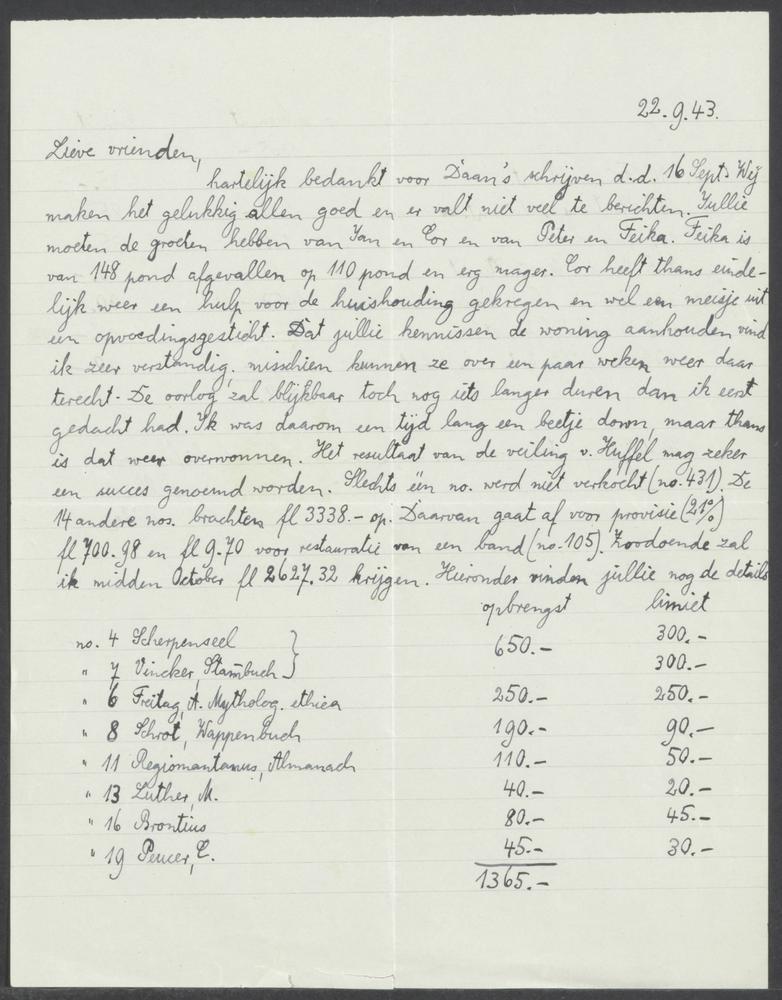 22.9.43.
Lieve vrienden,
hartelijk bedankt voor Daan's schrijven d.d. 16 Sept. Wij
maken het gelukkig allen goed en er valt niet veel te berichten. Jullie
moeten de groeten hebben van Jan en Cor en van Peter en Feika. Feika is
van 148 pond afgevallen op 110 pond en erg mager. Cor heeft thans einde-
lijk weer een hulp voor de huishouding gekregen en wel een meisje uit
een opvoedingsgesticht. Dat jullie kennissen de woning aanhouden vind
ik zeer verstandig, misschien kunnen ze over een paar weken weer daar
terecht. De oorlog zal blijkbaar toch nog iets langer duren dan ik eerst
gedacht had. Ik was daarom een tijd lang een beetje down, maar thans
is dat weer overwonnen. Het resultaat van de veiling v. Huffel mag zeker
een succes genoemd worden. Slechts één no. werd niet verkocht (no. 431). De
14 andere nos. brachten fl 3338.- op. Daarvan gaat af voor provisie (21%)
fl 700.98 en fl 9.70 voor restauratie van een band (no. 105). Zoodoende zal
ik midden October fl 2627.32 krijgen. Hieronder vinden jullie nog de details
opbrengst limiet
no. 4 Scherpenseel } 650.- 300.-
" 7 Vincker, Stambuch } 300.-
" 6 Freitag, A. Mytholog. ethica 250.- 250.-
" 8 Schrot, Wappenbuch 190.- 90.-
" 11 Regiomantanus, Almanach 110.- 50.-
" 13 Luther, M. 40.- 20.-
" 16 Brontius 80.- 45.-
" 19 Peucer, C. 45.- 30.-
1365.-